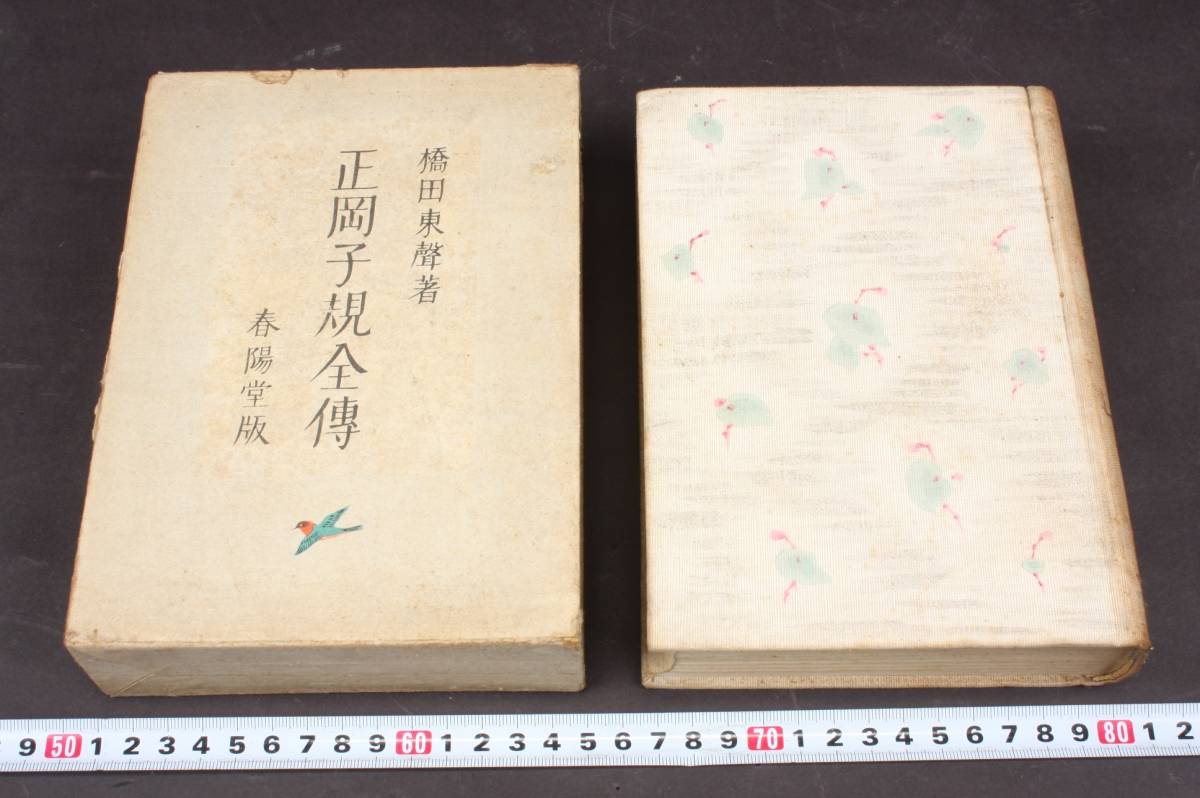 橋田東聲著
正岡子規全傳
春陽堂版
9 50 1 2 3 4 5 6 7 8 9 60 1 2 3 4 5 6 7 8 9 70 1 2 3 4 5 6 7 8 9 80 1 2